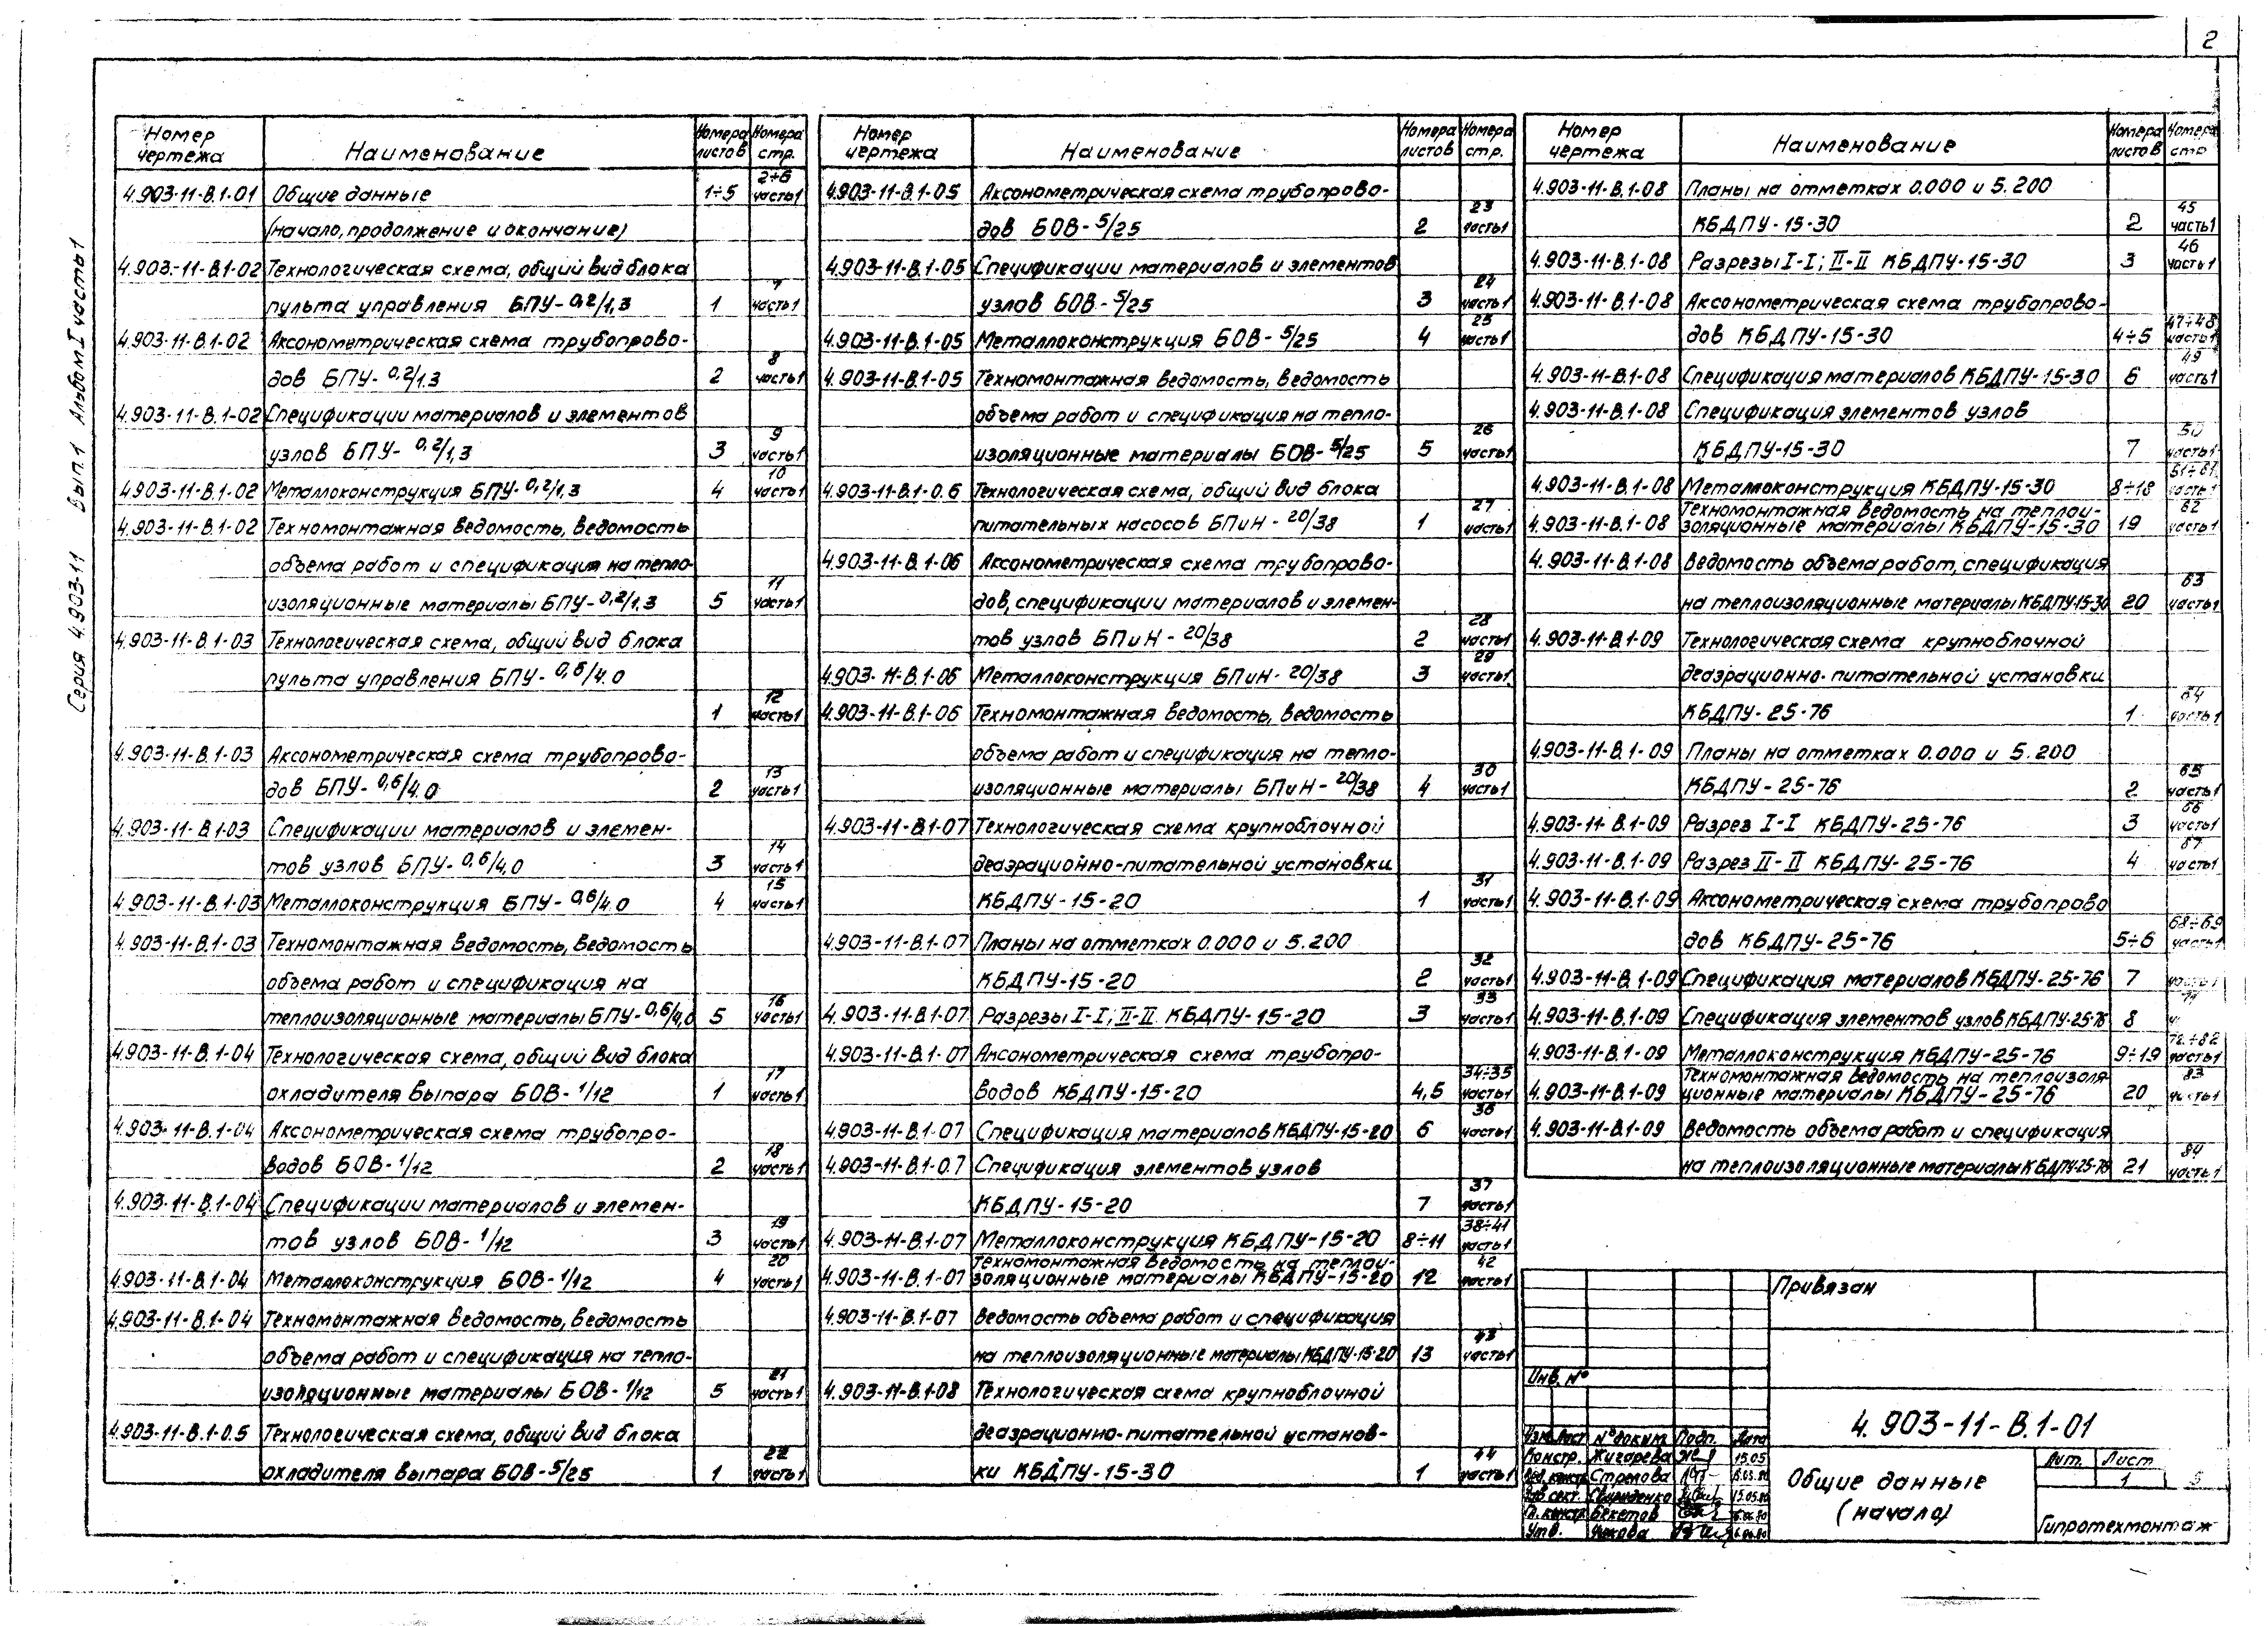 2
Серия 4.903-11 Вып.1 Альбом I часть 1
Номер чертежа Наименование Номера листов Номера стр.
4.903-11-В.1-01 Общие данные 1÷5 2÷6 часть 1
(начало, продолжение и окончание)
4.903-11-В.1-02 Технологическая схема, общий вид блока
пульта управления БПУ-0,2/1,3 1 7 часть 1
4.903-11-В.1-02 Аксонометрическая схема трубопрово-
дов БПУ-0,2/1.3 2 8 часть 1
4.903-11-В.1-02 Спецификации материалов и элементов
узлов БПУ-0,2/1,3 3 9 часть 1
4.903-11-В.1-02 Металлоконструкция БПУ-0,2/1,3 4 10 часть 1
4.903-11-В.1-02 Техномонтажная ведомость, ведомость
объема работ и спецификация на тепло-
изоляционные материалы БПУ-0,2/1.3 5 11 часть 1
4.903-11-В.1-03 Технологическая схема, общий вид блока
пульта управления БПУ-0,6/4.0
1 12 часть 1
4.903-11-В.1-03 Аксонометрическая схема трубопрово-
дов БПУ-0,6/4.0 2 13 часть 1
4.903-11-В.1-03 Спецификации материалов и элемен-
тов узлов БПУ-0,6/4,0 3 14 часть 1
4.903-11-В.1-03 Металлоконструкция БПУ-0,6/4.0 4 15 часть 1
4.903-11-В.1-03 Техномонтажная ведомость, ведомость
объема работ и спецификация на
теплоизоляционные материалы БПУ-0,6/4,0 5 16 часть 1
4.903-11-В.1-04 Технологическая схема, общий вид блока
охладителя выпара БОВ-1/12 1 17 часть 1
4.903-11-В.1-04 Аксонометрическая схема трубопро-
водов БОВ-1/12 2 18 часть 1
4.903-11-В.1-04 Спецификации материалов и элемен-
тов узлов БОВ-1/12 3 19 часть 1
4.903-11-В.1-04 Металлоконструкция БОВ-1/12 4 20 часть 1
4.903-11-В.1-04 Техномонтажная ведомость, ведомость
объема работ и спецификация на тепло-
изоляционные материалы БОВ-1/12 5 21 часть 1
4.903-11-В.1-0.5 Технологическая схема, общий вид блока
охладителя выпара БОВ-5/25 1 22 часть 1
Номер чертежа Наименование Номера листов Номера стр.
4.903-11-В.1-05 Аксонометрическая схема трубопрово-
дов БОВ-5/25 2 23 часть 1
4.903-11-В.1-05 Спецификации материалов и элементов
узлов БОВ-5/25 3 24 часть 1
4.903-11-В.1-05 Металлоконструкция БОВ-5/25 4 25 часть 1
4.903-11-В.1-05 Техномонтажная ведомость, ведомость
объема работ и спецификация на тепло-
изоляционные материалы БОВ-5/25 5 26 часть 1
4.903-11-В.1-0.6 Технологическая схема, общий вид блока
питательных насосов БПиН-20/38 1 27 часть 1
4.903-11-В.1-06 Аксонометрическая схема трубопрово-
дов, спецификации материалов и элемен-
тов узлов БПиН-20/38 2 28 часть 1
4.903-11-В.1-06 Металлоконструкция БПиН-20/38 3 29 часть 1
4.903-11-В.1-06 Техномонтажная ведомость, ведомость
объема работ и спецификация на тепло-
изоляционные материалы БПиН-20/38 4 30 часть 1
4.903-11-В.1-07 Технологическая схема крупноблочной
деаэрационно-питательной установки
КБДПУ-15-20 1 31 часть 1
4.903-11-В.1-07 Планы на отметках 0.000 и 5.200
КБДПУ-15-20 2 32 часть 1
4.903-11-В.1-07 Разрезы I-I; II-II КБДПУ-15-20 3 33 часть 1
4.903-11-В.1-07 Аксонометрическая схема трубопро-
водов КБДПУ-15-20 4,5 34÷35 часть 1
4.903-11-В.1-07 Спецификация материалов КБДПУ-15-20 6 36 часть 1
4.903-11-В.1-0.7 Спецификация элементов узлов
КБДПУ-15-20 7 37 часть 1
4.903-11-В.1-07 Металлоконструкция КБДПУ-15-20 8÷11 38÷41 часть 1
4.903-11-В.1-07 Техномонтажная ведомость на теплои-
золяционные материалы КБДПУ-15-20 12 42 часть 1
4.903-11-В.1-07 Ведомость объема работ и спецификация
на теплоизоляционные материалы КБДПУ-15-20 13 43 часть 1
4.903-11-В.1-08 Технологическая схема крупноблочной
деаэрационно-питательной установ-
ки КБДПУ-15-30 1 44 часть 1
Номер чертежа Наименование Номера листов Номера стр
4.903-11-В.1-08 Планы на отметках 0.000 и 5.200
КБДПУ-15-30 2 45 часть 1
4.903-11-В.1-08 Разрезы I-I; II-II КБДПУ-15-30 3 46 часть 1
4.903-11-В.1-08 Аксонометрическая схема трубопрово-
дов КБДПУ-15-30 4÷5 47÷48 часть 1
4.903-11-В.1-08 Спецификация материалов КБДПУ-15-30 6 49 часть 1
4.903-11-В.1-08 Спецификация элементов узлов
КБДПУ-15-30 7 50 часть 1
4.903-11-В.1-08 Металлоконструкция КБДПУ-15-30 8÷18 51÷61 часть 1
4.903-11-В.1-08 Техномонтажная ведомость на теплои-
золяционные материалы КБДПУ-15-30 19 62 часть 1
4.903-11-В.1-08 Ведомость объема работ, спецификация
на теплоизоляционные материалы КБДПУ-15-30 20 63 часть 1
4.903-11-В.1-09 Технологическая схема крупноблочной
деаэрационно-питательной установки
КБДПУ-25-76 1 64 часть 1
4.903-11-В.1-09 Планы на отметках 0.000 и 5.200
КБДПУ-25-76 2 65 часть 1
4.903-11-В.1-09 Разрез I-I КБДПУ-25-76 3 66 часть 1
4.903-11-В.1-09 Разрез II-II КБДПУ-25-76 4 67 часть 1
4.903-11-В.1-09 Аксонометрическая схема трубопрово
дов КБДПУ-25-76 5÷6 68÷69 часть 1
4.903-11-В.1-09 Спецификация материалов КБДПУ-25-76 7 часть 1
4.903-11-В.1-09 Спецификация элементов узлов КБДПУ-25-76 8
4.903-11-В.1-09 Металлоконструкция КБДПУ-25-76 9÷19 72÷82 часть 1
4.903-11-В.1-09 Техномонтажная ведомость на теплоизоля-
ционные материалы КБДПУ-25-76 20 83 часть 1
4.903-11-В.1-09 Ведомость объема работ и спецификация
на теплоизоляционные материалы КБДПУ-25-76 21 84 часть 1
Привязан
Инв. №
4.903-11-В.1-01
Изм. Лист № докум. Подп. Дата
Констр. Жигарева 15.05
Вед. констр. Стрелова
Зав. сект. Свириденко 15.05.80
Гл. констр. Бекетов
Утв.
Общие данные
(начало)
Лит. Лист
1 5
Гипротехмонтаж